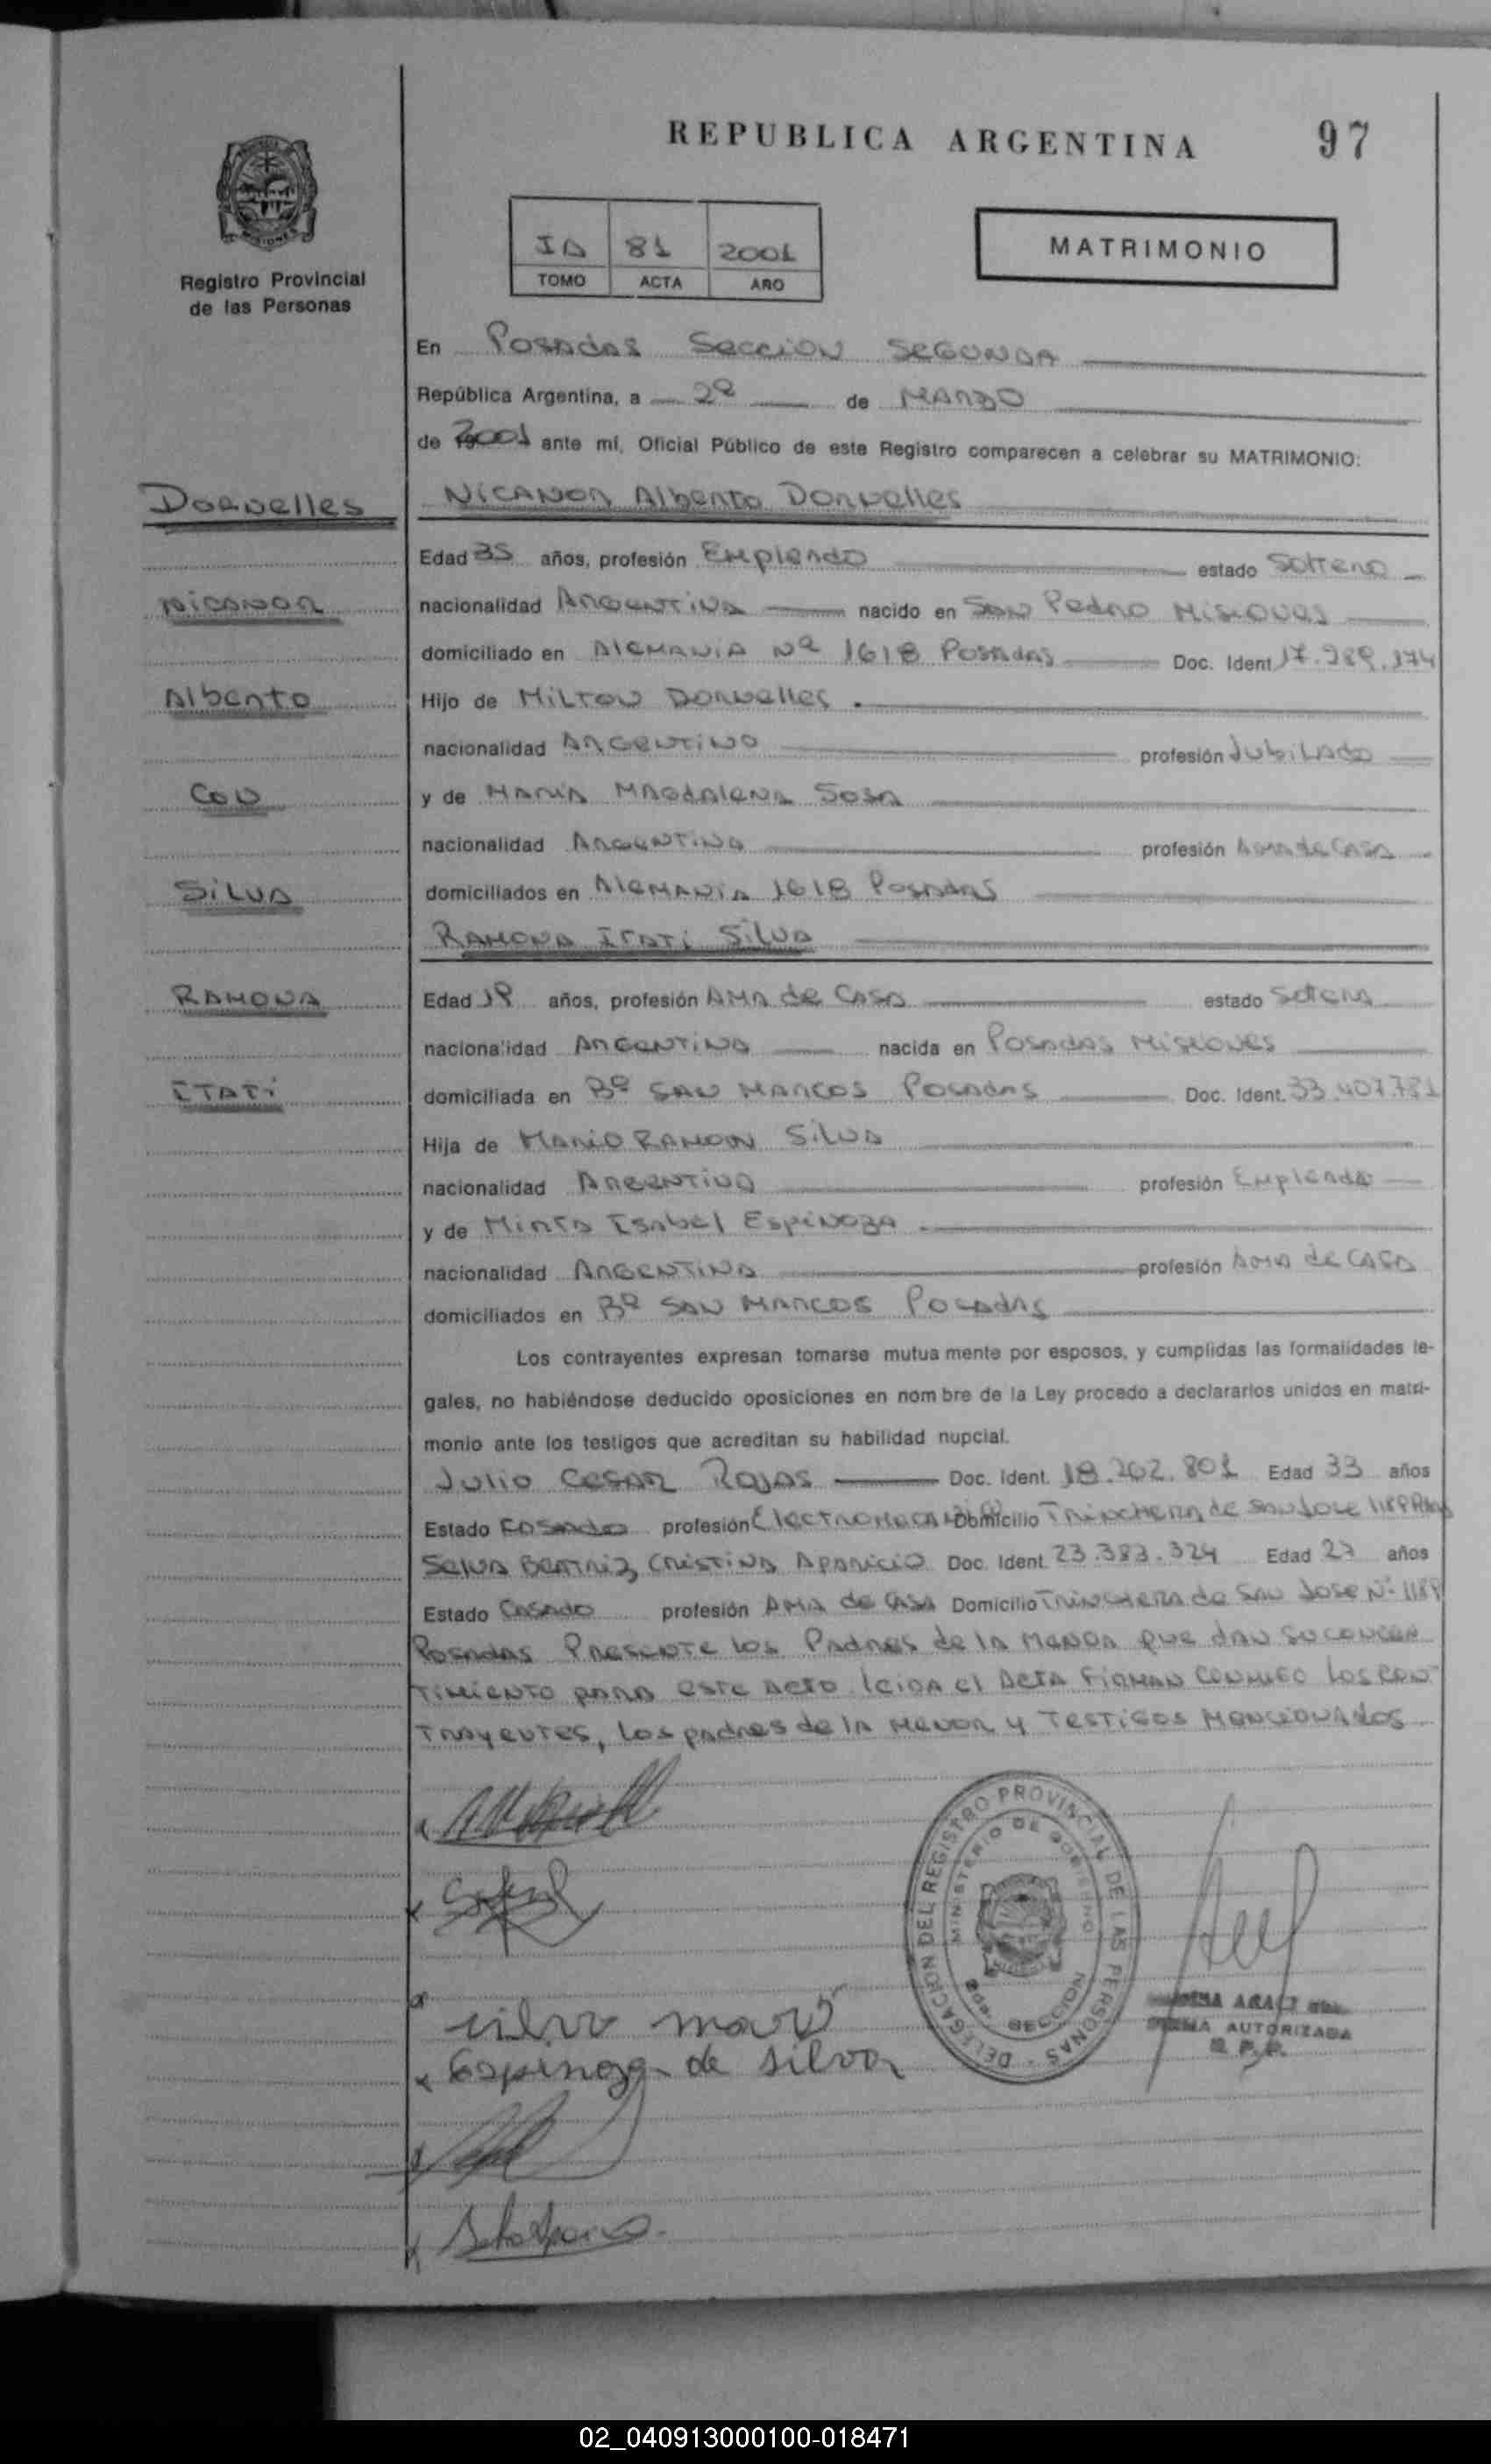 REPUBLICA ARGENTINA
97
Registro Provincial
de las Personas
81 2001
TOMO ACTA AÑO
MATRIMONIO
En Posadas Seccion Segunda
República Argentina, a de Marzo
de 2001 ante mí, Oficial Público de este Registro comparecen a celebrar su MATRIMONIO:
Dornelles
Nicanor Alberto Dornelles
Edad 35 años, profesión Empleado estado Soltero
Nicanor
nacionalidad Argentina nacido en San Pedro Misiones
domiciliado en Alemania Nº 1618 Posadas Doc. Ident 17.989.174
Alberto
Hijo de Milton Dornelles.
nacionalidad Argentino profesión Jubilado
Con
y de Maria Magdalena Sosa
nacionalidad Argentina profesión Ama de Casa
Silva
domiciliados en Alemania 1618 Posadas
Ramona Itati Silva
Ramona
Edad años, profesión Ama de Casa estado Soltera
nacionalidad Argentina nacida en Posadas Misiones
Itati
domiciliada en Bº San Marcos Posadas Doc. Ident. 33.407.781
Hija de Mario Ramon Silva
nacionalidad Argentino profesión Empleado
y de Mirta Isabel Espinoza.
nacionalidad Argentina profesión Ama de Casa
domiciliados en Bº San Marcos Posadas
Los contrayentes expresan tomarse mutua mente por esposos, y cumplidas las formalidades le-
gales, no habiéndose deducido oposiciones en nom bre de la Ley procedo a declararlos unidos en matri-
monio ante los testigos que acreditan su habilidad nupcial.
Julio Cesar Rojas Doc. Ident. 18.262.801 Edad 33 años
Estado Casado profesión Electromecanico Domicilio Trinchera de San Jose 1189
Selva Beatriz Cristina Aparicio Doc. Ident. 23.383.324 Edad 27 años
Estado Casado profesión Ama de Casa Domicilio Trinchera de San Jose Nº 1189
Posadas Presente los Padres de la menor que dan su concen
timiento para este acto leida el acta firman conmigo los con
trayentes, los padres de la menor y testigos mencionados
DELEGACION DEL REGISTRO PROVINCIAL DE LAS PERSONAS
MINISTERIO DE GOBIERNO
SECCION
silva mario
Espinoza de silva
FIRMA AUTORIZADA
R. P. P.
02_040913000100-018471